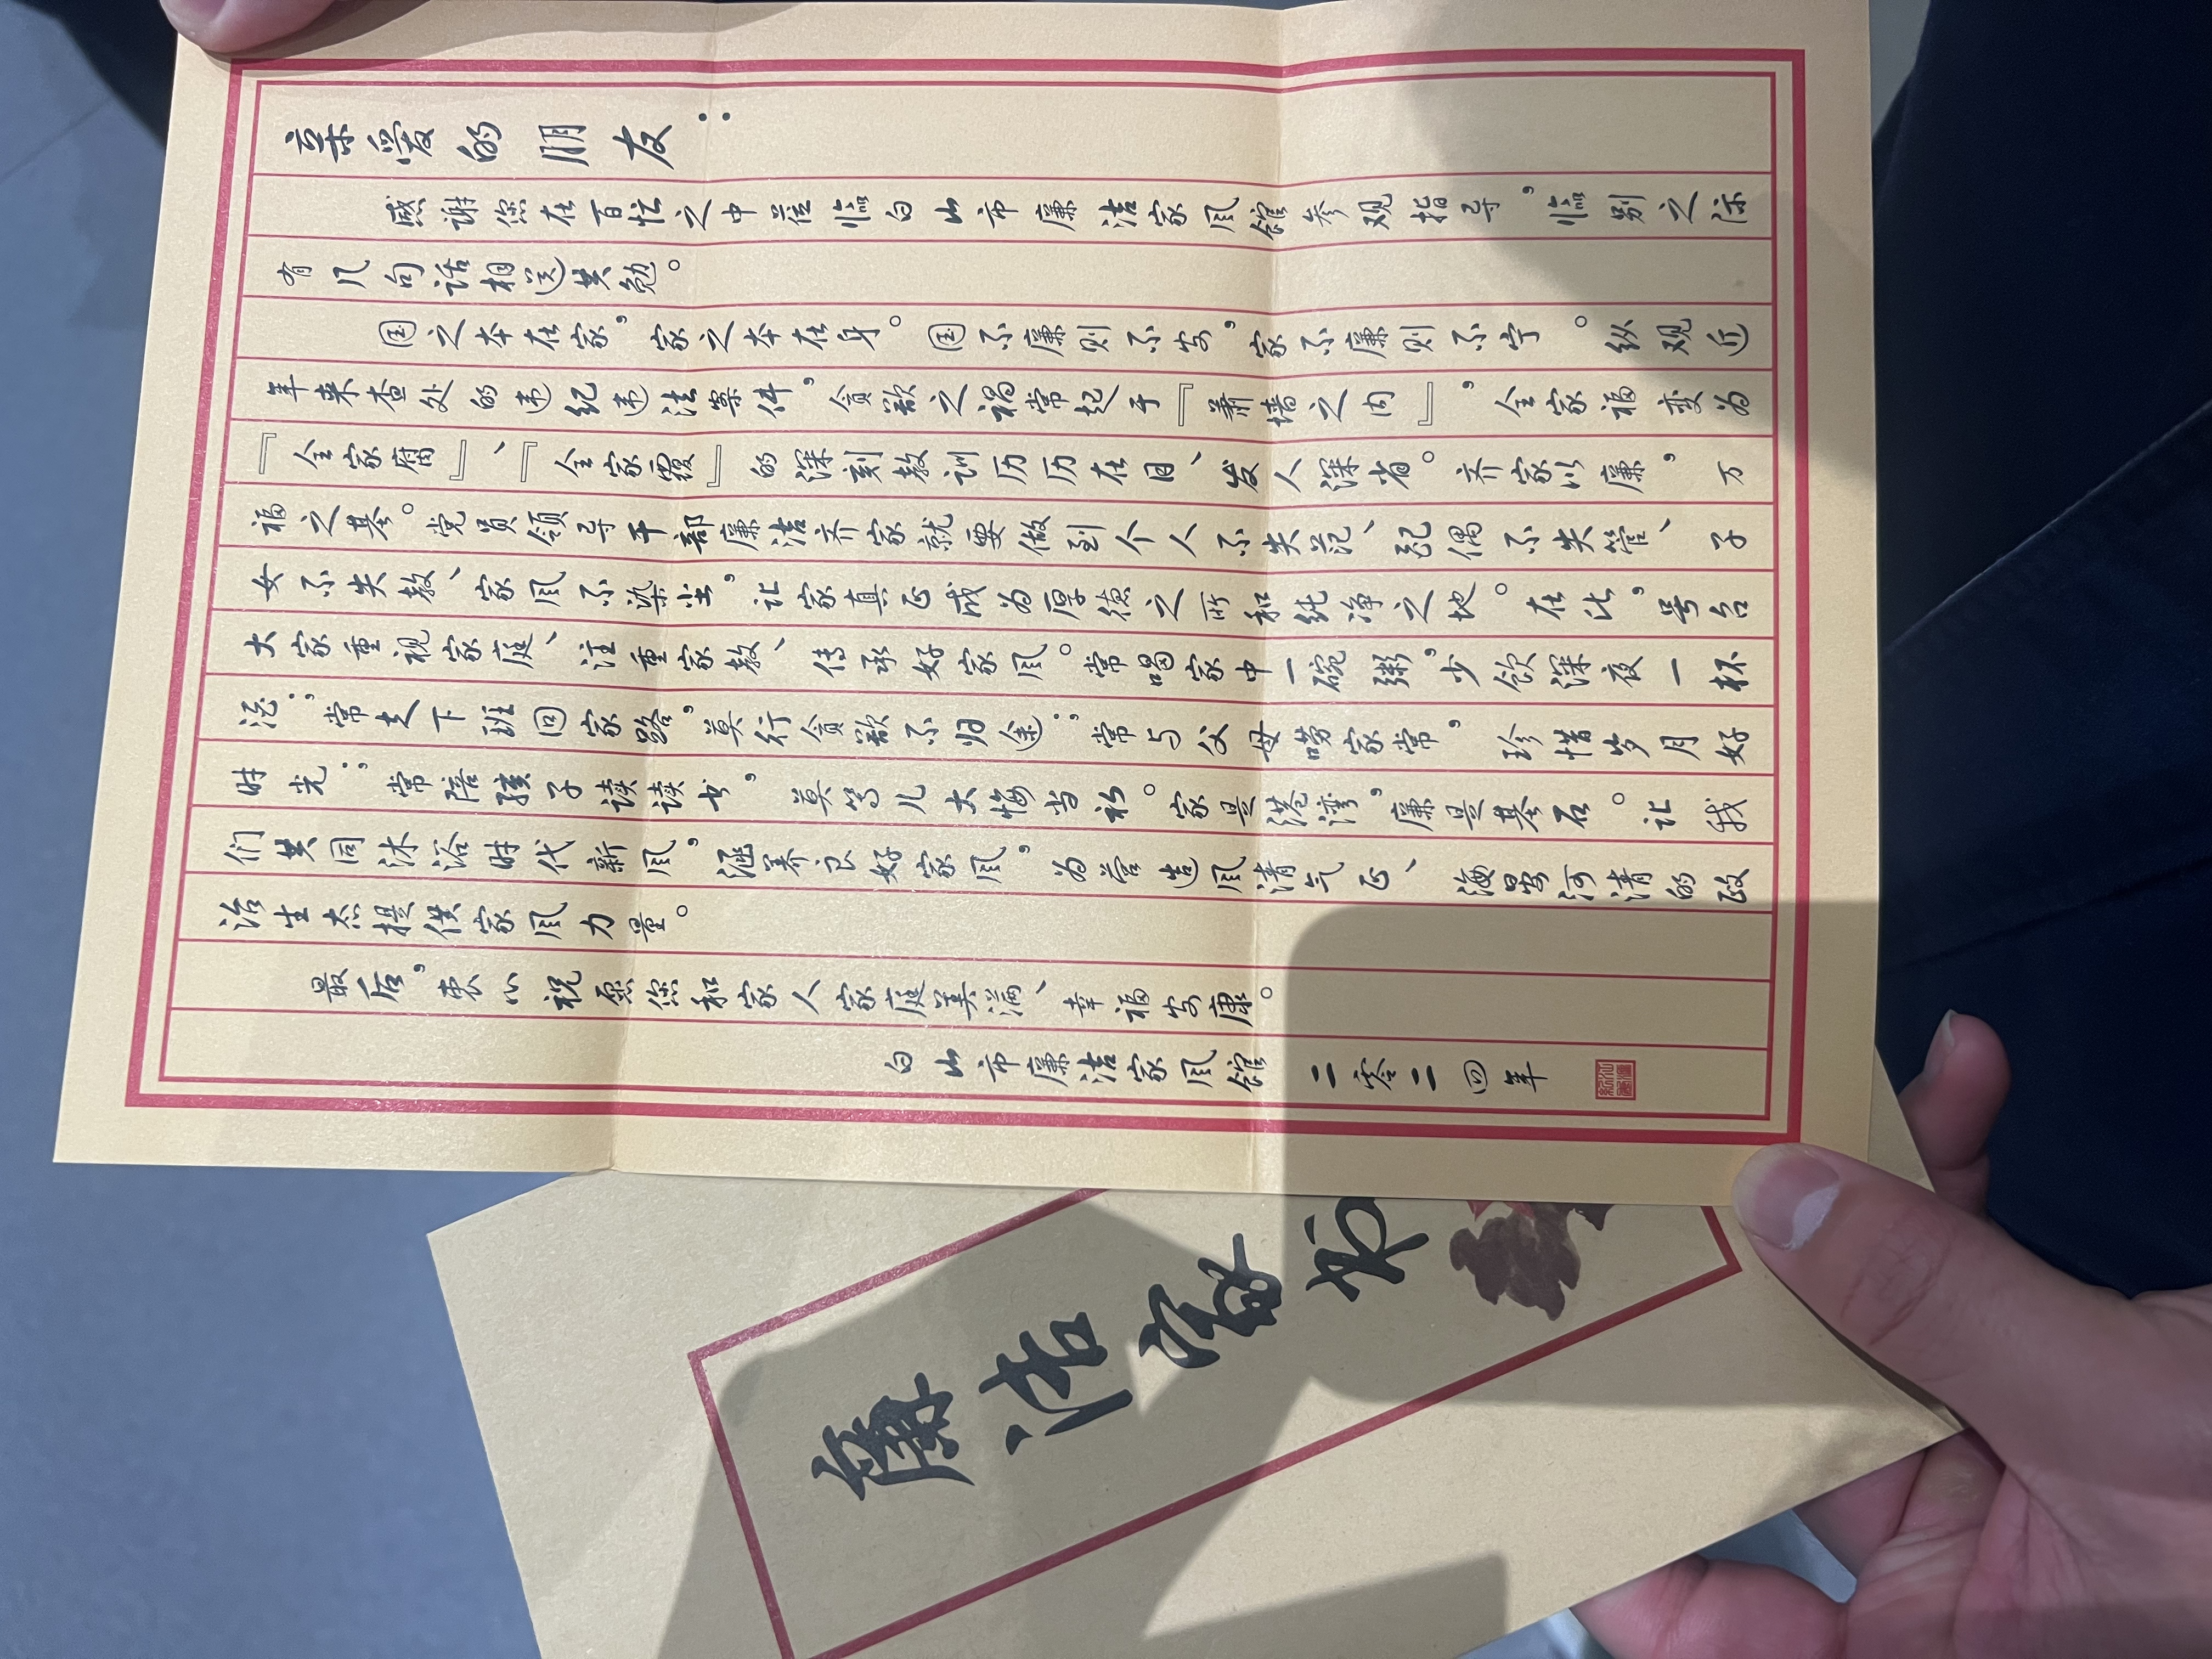 亲爱的朋友：
感谢您在百忙之中莅临白山市廉洁家风馆参观指导，临别之际
有几句话相送共勉。
国之本在家，家之本在身。国不廉则不安，家不廉则不宁。纵观近
年来查处的违纪违法案件，贪欲之祸常起于『萧墙之内』，全家福变为
『全家腐』、『全家覆』的深刻教训历历在目、发人深省。齐家以廉，万
福之基。党员领导干部廉洁齐家就要做到个人不失范、配偶不失管、子
女不失教、家风不染尘，让家真正成为厚德之所和纯净之地。在此，号召
大家重视家庭、注重家教、传承好家风。常喝家中一碗粥，少饮深夜一杯
酒；常走下班回家路，莫行贪欲不归途；常与父母唠家常，珍惜岁月好
时光；常陪孩子读读书，莫等儿大悔当初。家是港湾，廉是基石。让我
们共同沐浴时代新风，涵养良好家风，为营造风清气正、海晏河清的政
治生态提供家风力量。
最后，衷心祝愿您和家人家庭美满、幸福安康。
白山市廉洁家风馆 二零二四年
廉洁家书